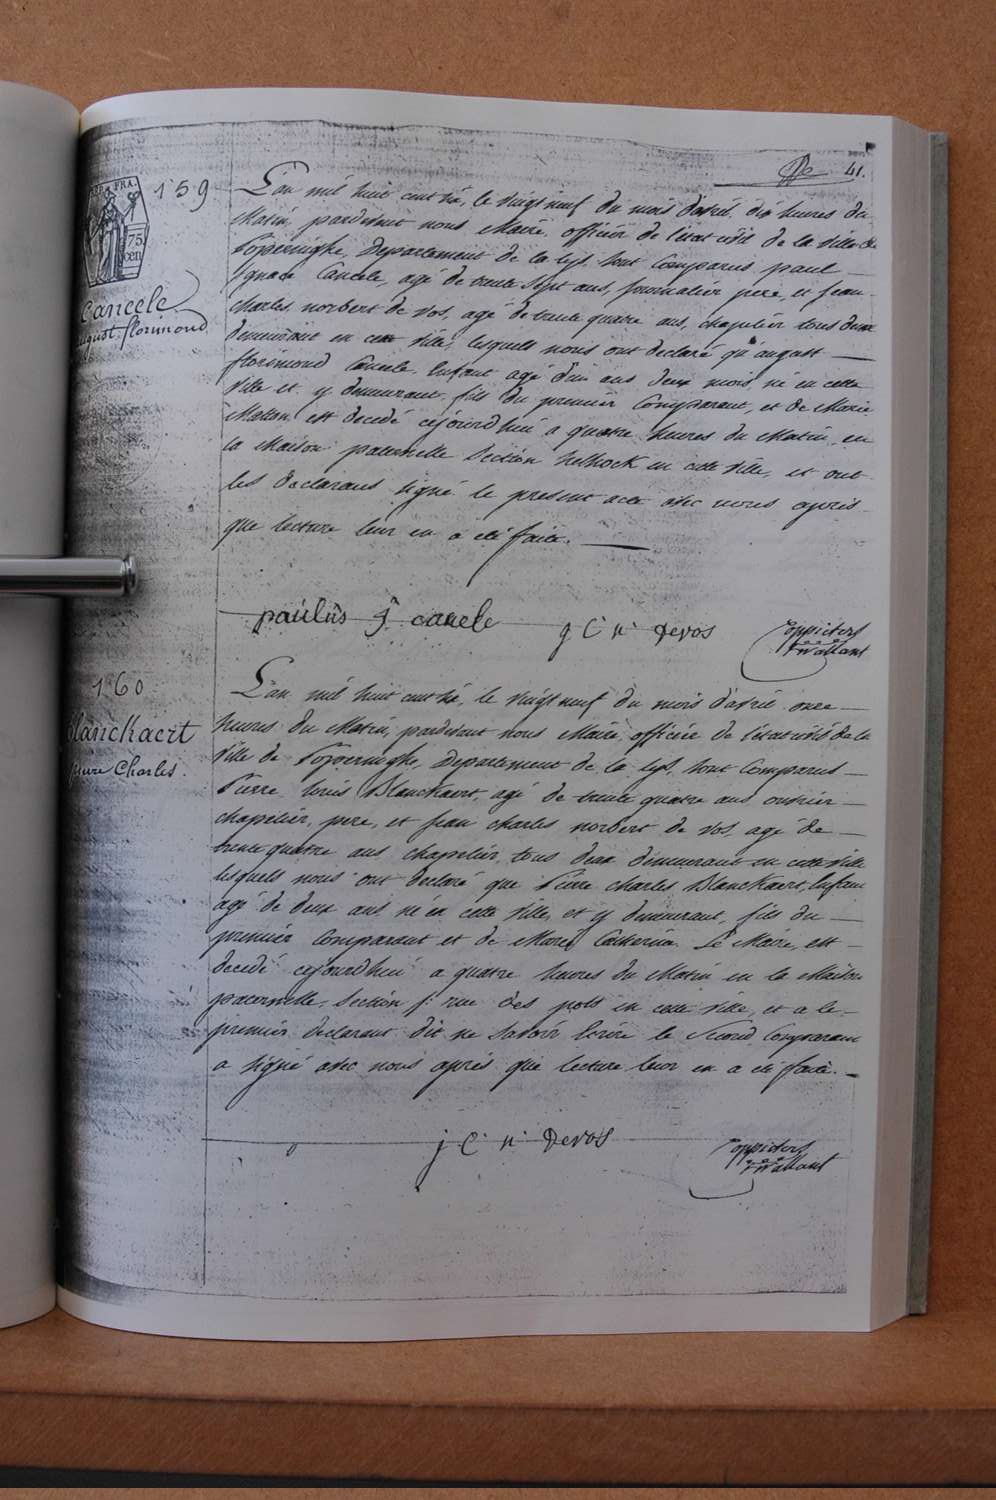 41.
FRA.
75
cen
159
Cancele
august florimond
L'an mil huit cent dix, le vingt neuf du mois d'avril dix heures du
Matin, pardevant nous Maire, officier de l'état civil de la ville de
Poperinghe, Departement de la lys, sont Comparus paul
Ignace Cancele, agé de trente sept ans, journalier pere, et jean
charles norbert de vos, agé de trente quatre ans, chapelier tous deux
demeurant en cette ville, lesquels nous ont declaré qu'august
florimond Cancele Enfant agé d'un ans deux mois né en cette
ville et y demeurant, fils du premier Comparant, et de Marie
est decedé cejourd'hui a quatre heures du Matin, en
la Maison paternelle section en cette ville, et ont
les declarans signé le present acte avec nous après
que lecture leur en a été faite.
paulus j cancele j C n Devos
160
Blanckaert
pierre Charles.
L'an mil huit cent dix, le vingt neuf du mois d'avril onze
heures du Matin, pardevant nous Maire officier de l'état civil de la
ville de Poperinghe, Departement de la lys, sont Comparus
Pierre louis Blanckaert, agé de trente quatre ans ouvrier
chapelier, pere, et jean charles norbert de vos, agé de
trente quatre ans chapelier, tous deux demeurant en cette ville
lesquels nous ont declaré que Pierre charles Blanckaert, Enfant
agé de deux ans né en cette ville, et y demeurant, fils du
premier Comparant et de Marie Catherine Le Maire, est
decedé cejourd'hui a quatre heures du Matin en la Maison
paternelle, section j: rue des pots en cette ville, et a le
premier declarant dit ne savoir Ecrire le second Comparant
a signé avec nous après que lecture leur en a été faite.
j C n Devos